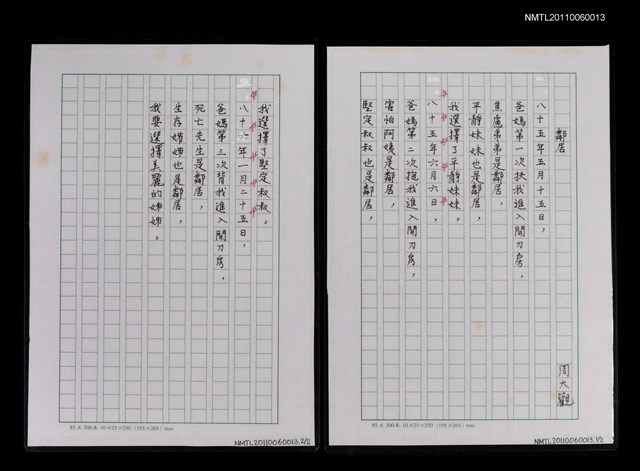 NMTL20110060013
鄰居
周大觀
八十五年五月十五日，
爸媽第一次扶我進入開刀房，
焦慮弟弟是鄰居，
平靜妹妹也是鄰居，
我選擇了平靜妹妹。
八十五年六月六日，
爸媽第二次抱我進入開刀房，
害怕阿姨是鄰居，
堅定叔叔也是鄰居，
85. 6. 300本 10×25=250 (195×265) mm
NMTL20110060013.1/2
我選擇了堅定叔叔。
八十六年一月二十五日，
爸媽第三次背我進入開刀房，
死亡先生是鄰居，
生存婿婿也是鄰居，
我要選擇美麗的姊姊。
85. 6. 300本 10×25=250 (195×265) mm
NMTL20110060013.2/2